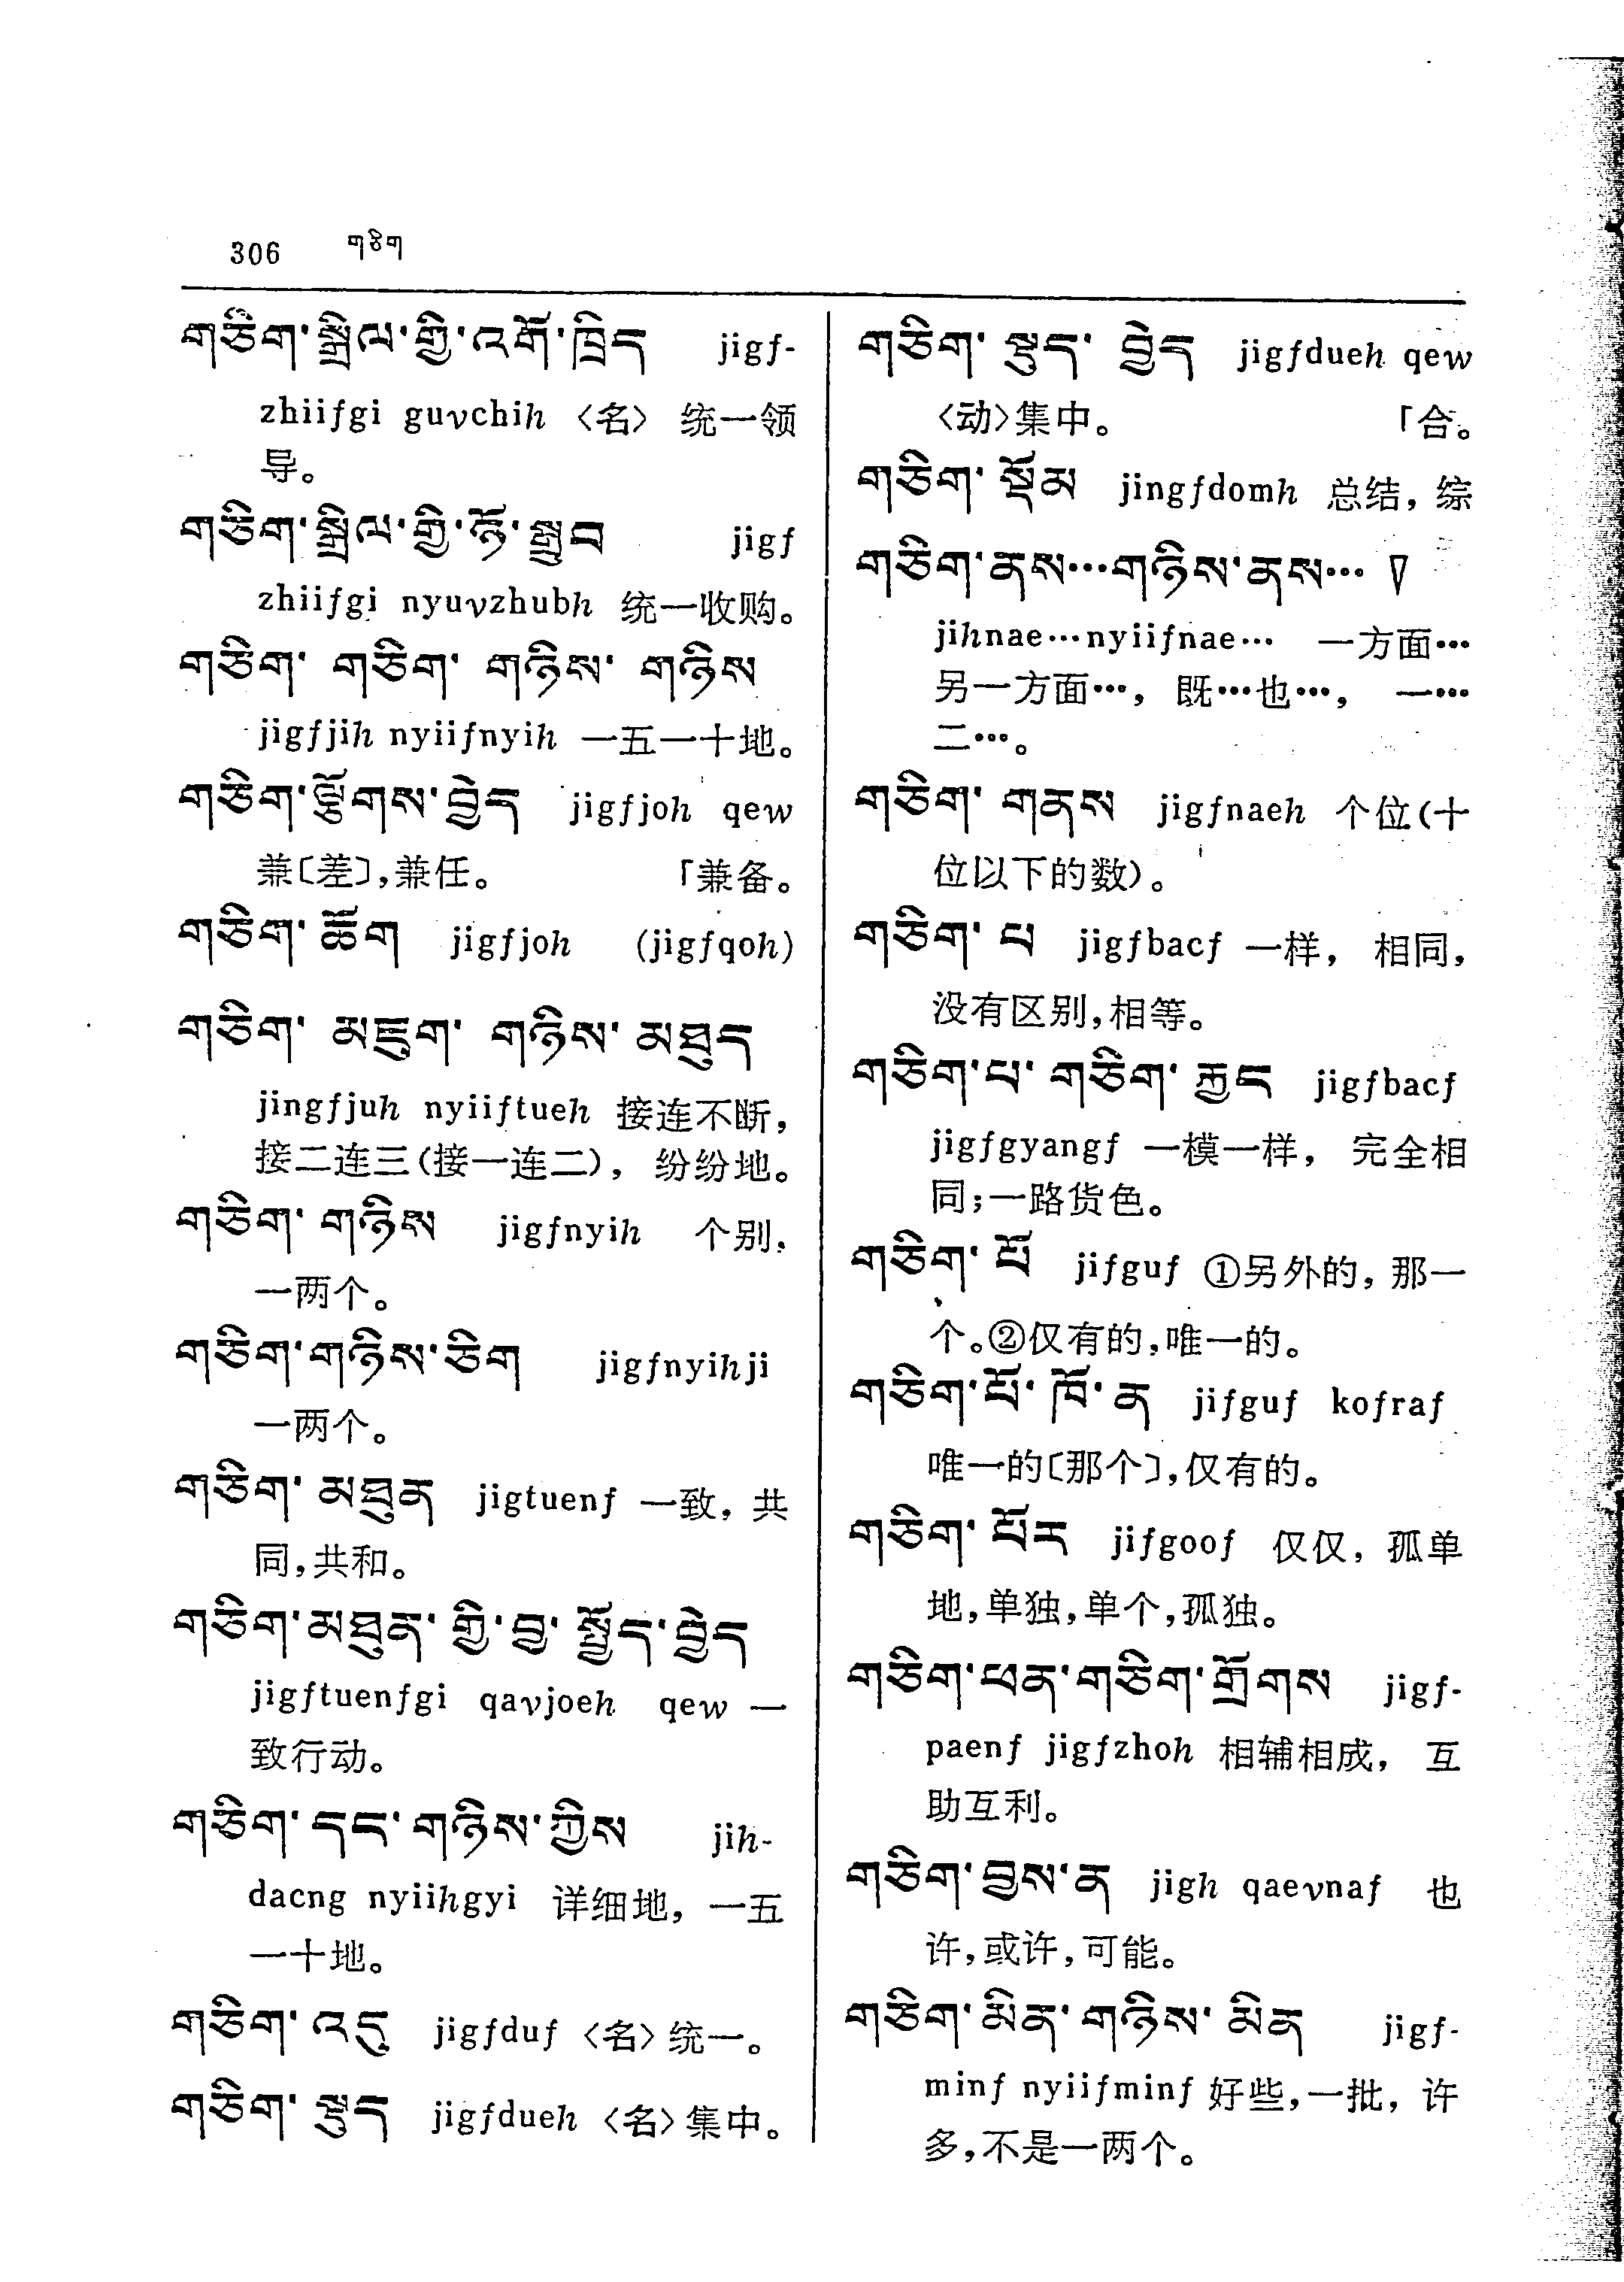 306 གཅིག
གཅིག་སྒྲིལ་གྱི་འགོ་ཁྲིད jigf-
zhiifgi guvchih 〈名〉 统一领
导。
གཅིག་སྒྲིལ་གྱི་ཉོ་སྒྲུབ jigf
zhiifgi nyuvzhubh 统一收购。
གཅིག་ གཅིག་ གཉིས་ གཉིས
jigfjih nyiifnyih 一五一十地。
གཅིག་ལྕོགས་བྱེད jigfjoh qew
兼〔差〕,兼任。 「兼备。
གཅིག་ ཆོག jigfjoh (jigfqoh)
གཅིག་ མཇུག་ གཉིས་ མཐུད
jingfjuh nyiiftueh 接连不断,
接二连三(接一连二), 纷纷地。
གཅིག་ གཉིས jigfnyih 个别,
一两个。
གཅིག་གཉིས་ཅིག jigfnyihji
一两个。
གཅིག་ མཐུན jigtuenf 一致, 共
同,共和。
གཅིག་མཐུན་ གྱི་ བྱ་ སྤྱོད་བྱེད
jigftuenfgi qavjoeh qew 一
致行动。
གཅིག་ དང་ གཉིས་ཀྱིས jih-
dacng nyiihgyi 详细地, 一五
一十地。
གཅིག་ འདུ jigfduf 〈名〉统一。
གཅིག་ སྡུད jigfdueh 〈名〉集中。
གཅིག་ སྡུད་ བྱེད jigfdueh qew
〈动〉集中。 「合。
གཅིག་ སྡོམ jingfdomh 总结, 综
གཅིག་ནས…གཉིས་ནས…
jihnae…nyiifnae… 一方面…
另一方面…, 既…也…, 一…
二…。
གཅིག་ གནས jigfnaeh 个位(十
位以下的数)。
གཅིག་ པ jigfbacf 一样, 相同,
没有区别,相等。
གཅིག་པ་ གཅིག་ རྐྱང jigfbacf
jigfgyangf 一模一样, 完全相
同;一路货色。
གཅིག་ པོ jifguf ①另外的, 那一
个。②仅有的,唯一的。
གཅིག་པོ་ ཁོ་ ན jifguf kofraf
唯一的〔那个〕,仅有的。
གཅིག་ པོར jifgoof 仅仅, 孤单
地,单独,单个,孤独。
གཅིག་ཕན་གཅིག་གྲོགས jigf-
paenf jigfzhoh 相辅相成, 互
助互利。
གཅིག་བྱས་ན jigh qaevnaf 也
许,或许,可能。
གཅིག་ མིན་ གཉིས་ མིན jigf-
minf nyiifminf 好些,一批, 许
多,不是一两个。